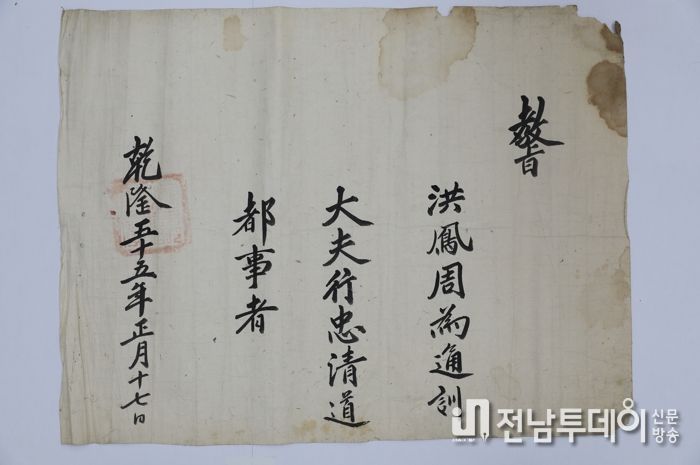 敎旨
洪鳳周爲通訓
大夫行忠清道
都事者
乾隆五十五年正月十七日
전남투데이 신문
방송